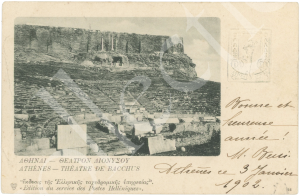 ΑΘΗΝΑΙ — ΘΕΑΤΡΟΝ ΔΙΟΝΥΣΟΥ
ATHÈNES — THÉATRE DE BACCHUS
„Ἔκδοσις τῆς Ἑλληνικῆς ταχυδρομικῆς ὑπηρεσίας".
„Edition du service des Postes Helléniques".
Bonne et
heureuse
année!
M. 
Athènes 3 Janvier
1902.